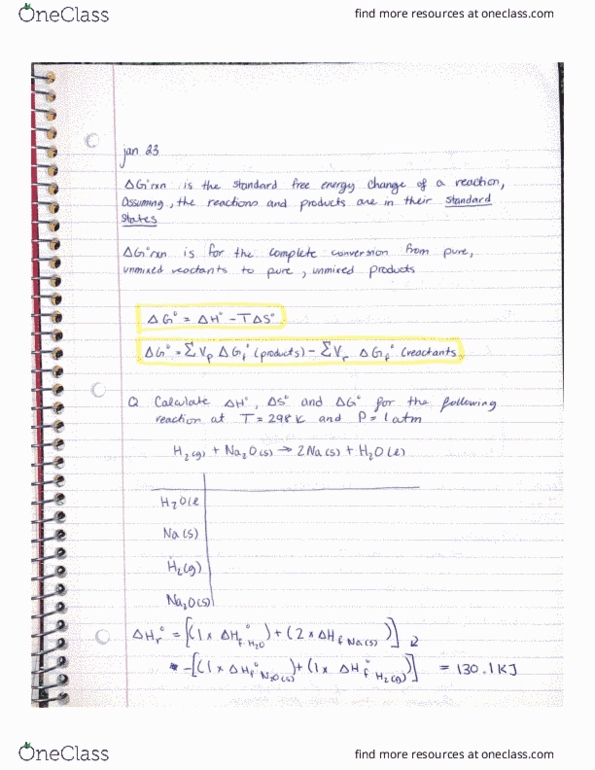 OneClass
find more resources at oneclass.com
jan 23
ΔG°rxn is the standard free energy change of a reaction,
Assuming, the reactions and products are in their standard
states
ΔG°rxn is for the complete conversion from pure,
unmixed reactants to pure, unmixed products
ΔG° = ΔH° - TΔS°
ΔG° = ΣVp ΔGf° (products) - ΣVr ΔGf° (reactants
Q Calculate ΔH°, ΔS° and ΔG° for the following
reaction at T = 298 K and P = 1 atm
H2(g) + Na2O(s) → 2Na(s) + H2O(l)
H2O(l
Na(s)
H2(g)
Na2O(s)
ΔHr° = [(1 x ΔHf° H2O) + (2 x ΔHf° Na(s))]
-[(1 x ΔHf° N2O(s)) + (1 x ΔHf° H2(g))] = 130.1 KJ
OneClass
find more resources at oneclass.com